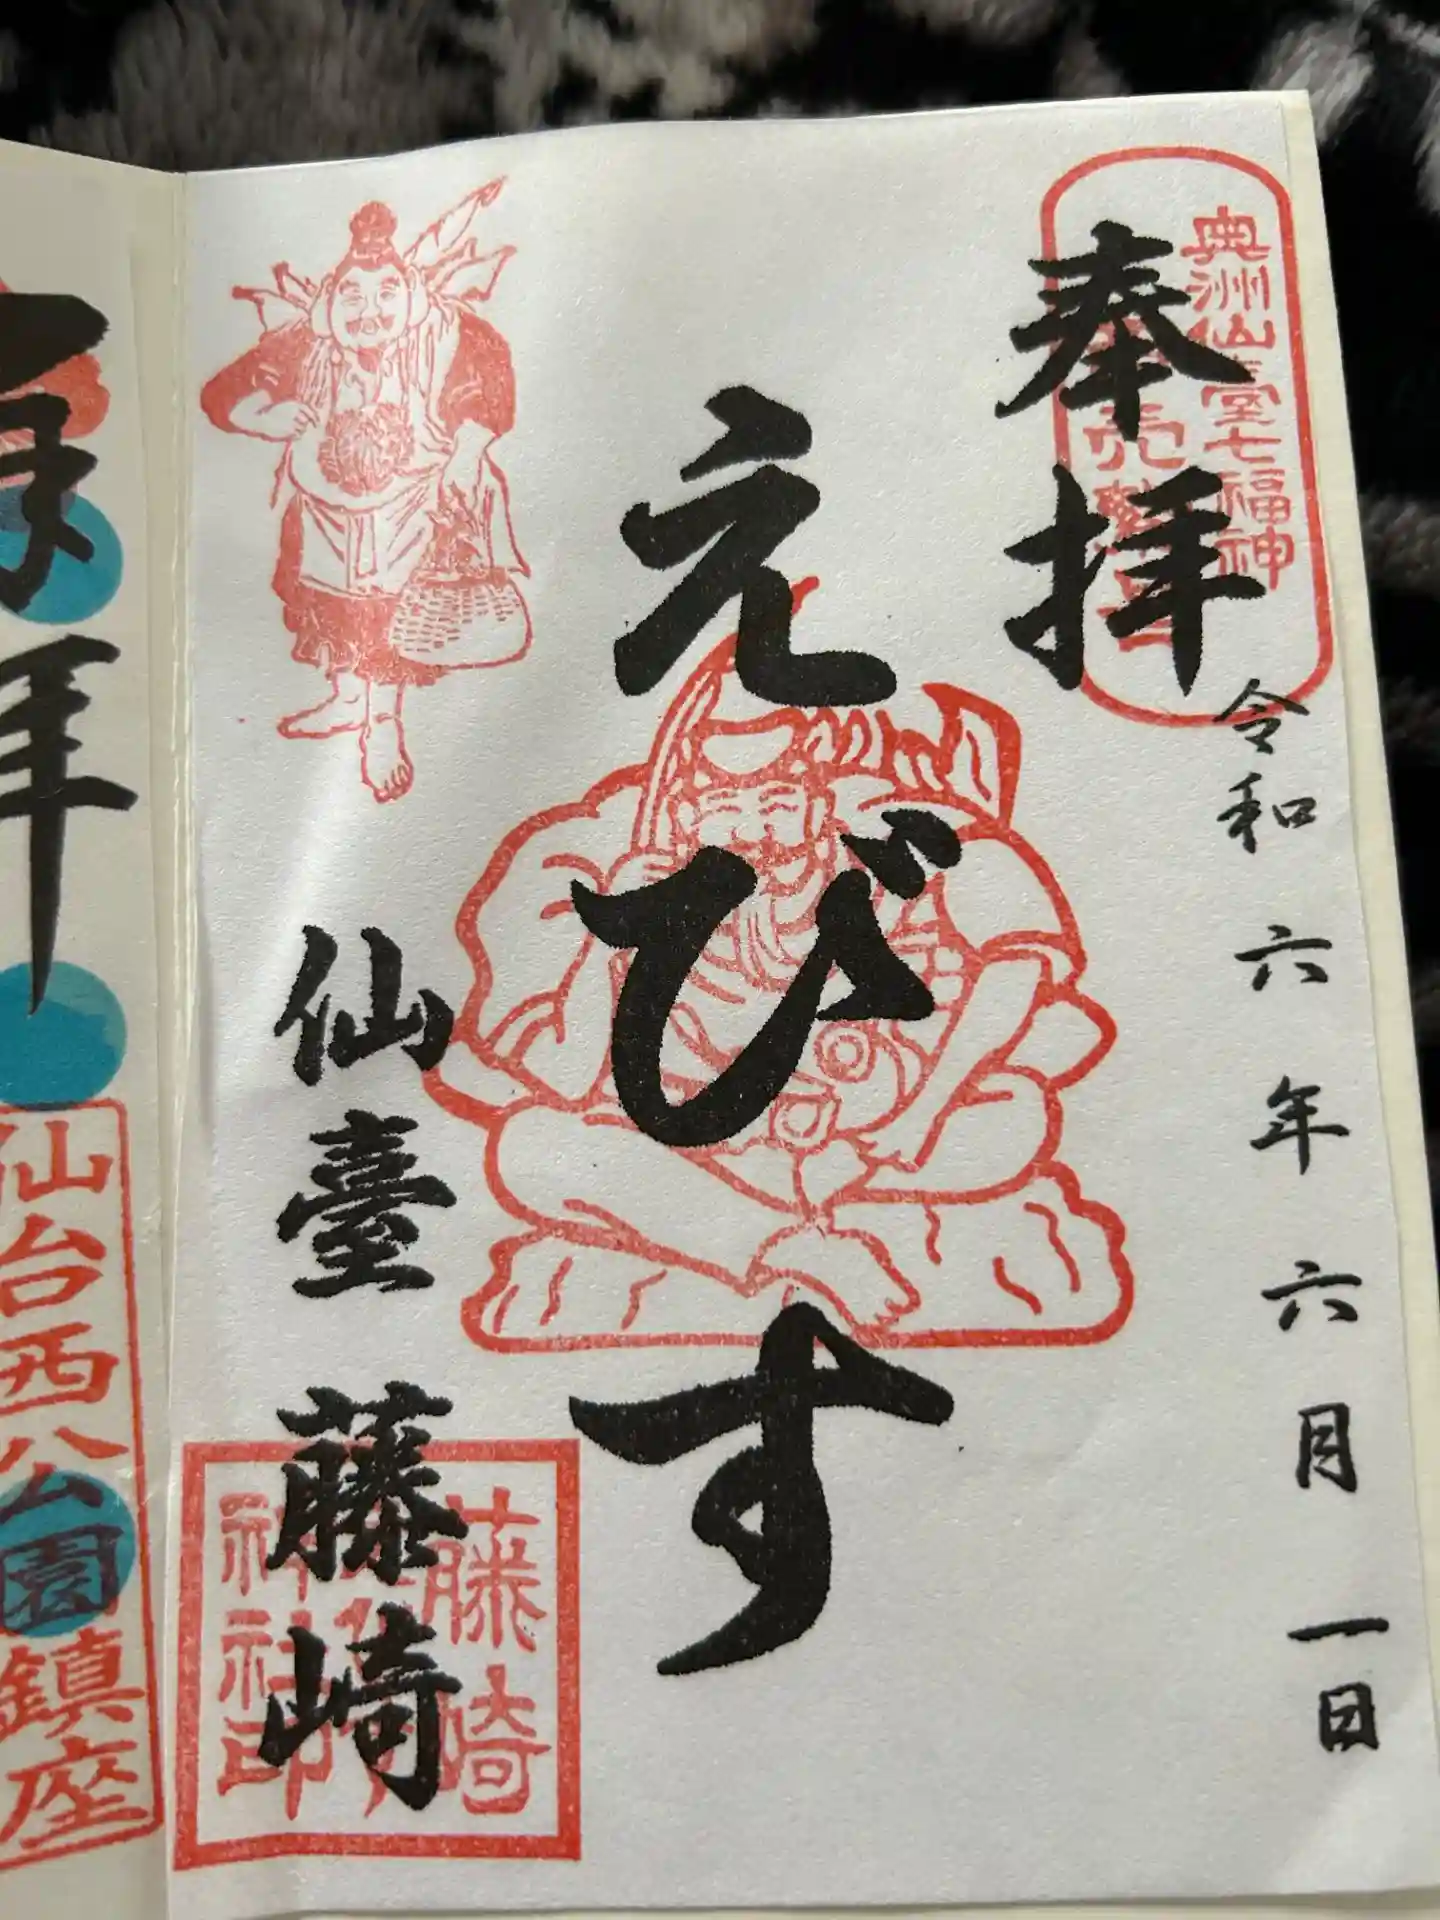 奉拝
奥洲仙臺七福神
令和六年六月一日
えびす
仙臺 藤崎
藤崎
神社印
拝
仙台西公園鎮座